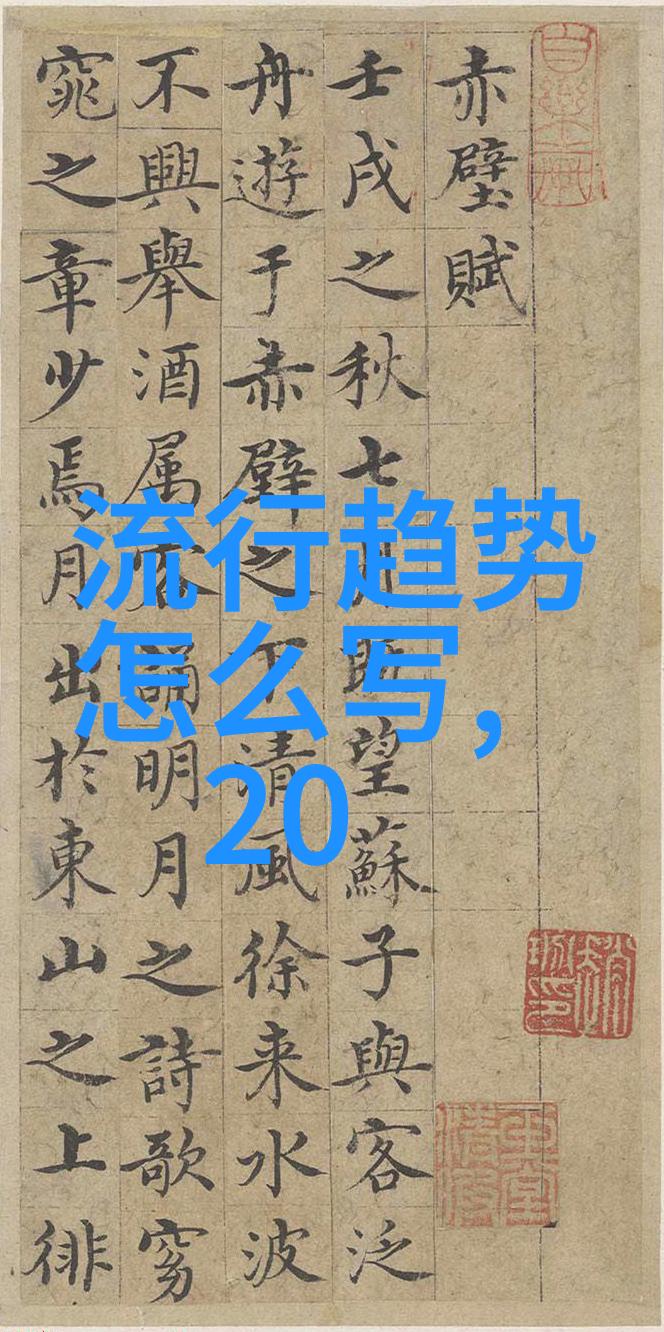 赤壁賦
壬戌之秋七月既望蘇子與客泛
舟遊于赤壁之下清風徐来水波
不興舉酒属客誦明月之詩歌窈
窕之章少焉月出於東山之上徘
流行趋势
怎么写,
20